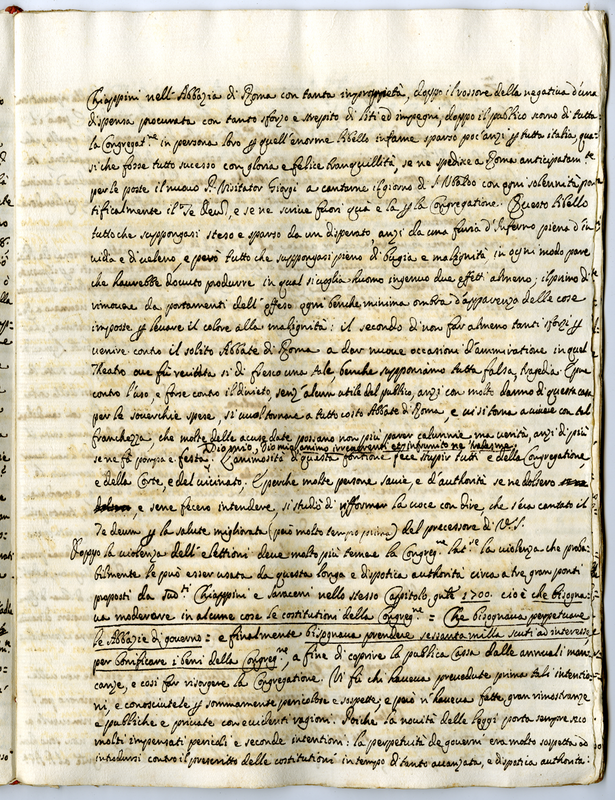 Chiappini nell'Abbazia di Roma con tanta improprietà, doppo il rossore della negativa d'una
dispensa procurata con tanto sforzo e strepito di liti ed impegni, doppo il publico scorno di tutta
la Congregat.ne in persona loro p quell'enorme libello infame sparso poc'anzi p tutta italia, qua
si che fosse tutto sucesso con gloria e felice tranquillità, se ne spedisce a Roma anticipatam.te
per le poste il nuovo P. Visitator Giorgi a cantarne il giorno di S. Ubaldo con ogni solennità pon
tificalmente il Te Deum, e se ne scrive fuori quà e là p la Congregatione. Questo libello
tutto che suppongasi steso e sparso da un disperato anzi da una furia d'Inferno piena d'in
vidia e di veleno, e però tutto che suppongasi pieno di bugia e malignità in ogni modo pare
che haurebbe dovuto produrre in qual si voglia huomo ingenuo due effetti almeno; il primo di
rimovere da portamenti dell'offeso ogni benche minima ombra d'apparenza delle cose
imposte p levare il colore alla malignità: il secondo di non far almeno tanti sforzi p
venire contro il solito Abbate di Roma a dar nuove occasioni d'ammiratione in quel
Theatro ove fù recitata si di fresco una tale, benche supponiamo tutta falsa, tragedia. E pure
contro l'uso, e forse contro il divieto, senz'alcun utile del publico, anzi con molto danno di questa casa
per le soverchie spese, si vuol tornare a tutto costo Abbate di Roma, e vi si torna a vivere con tal
franchezza, che molte delle accuse date possano non più parer calunnie ma verità, anzi di più
se ne fà pompa e festa. L'animosità di questa fontione fece stupir tutti e della Congregatione,
e della Corte, e del vicinato. E perche molte persone savie, e d'authorità se ne dolsero
e se ne fecero intendere, si studiò di riformar la voce con dire, che s'era cantato il
Te deum p la salute migliorata (però molto tempo prima) del precessore di V.S.
Doppo la violenza dell'elettioni deve molto più temere la Congreg.ne la violenza che proba
bilmente le può esser usata da questa longa e dispotica authorità circa a tre gran ponti
proposti da sud.ti Chiappini e Saraceni nello stesso Capitolo gnle 1700. cioè che bisogna
va moderare in alcune cose le costitutioni della Congreg.ne = Che bisognava perpetuare
le Abbazie di governo = e finalmente bisognava prendere sessanta milla scuti ad interesse
per bonificare i beni della Congreg.ne, a fine di coprire la publica Cassa dalle annuali man
canze, e così far risorgere la Congregatione. Vi fù chi haveva prevedute prima tali intentio
ni, e conosciutele p sommamente pericolose e sospette, e però n'haveva fatte gran rimostranze
e publiche e private con evidenti ragioni. Poiche la novità delle leggi porta sempre seco
molti impensati pericoli e seconde intentioni: la perpetuità de governi era molto sospetta ad
introdursi contro il prescritto delle costitutioni in tempo di tanto avanzata, e dispotica authorità: